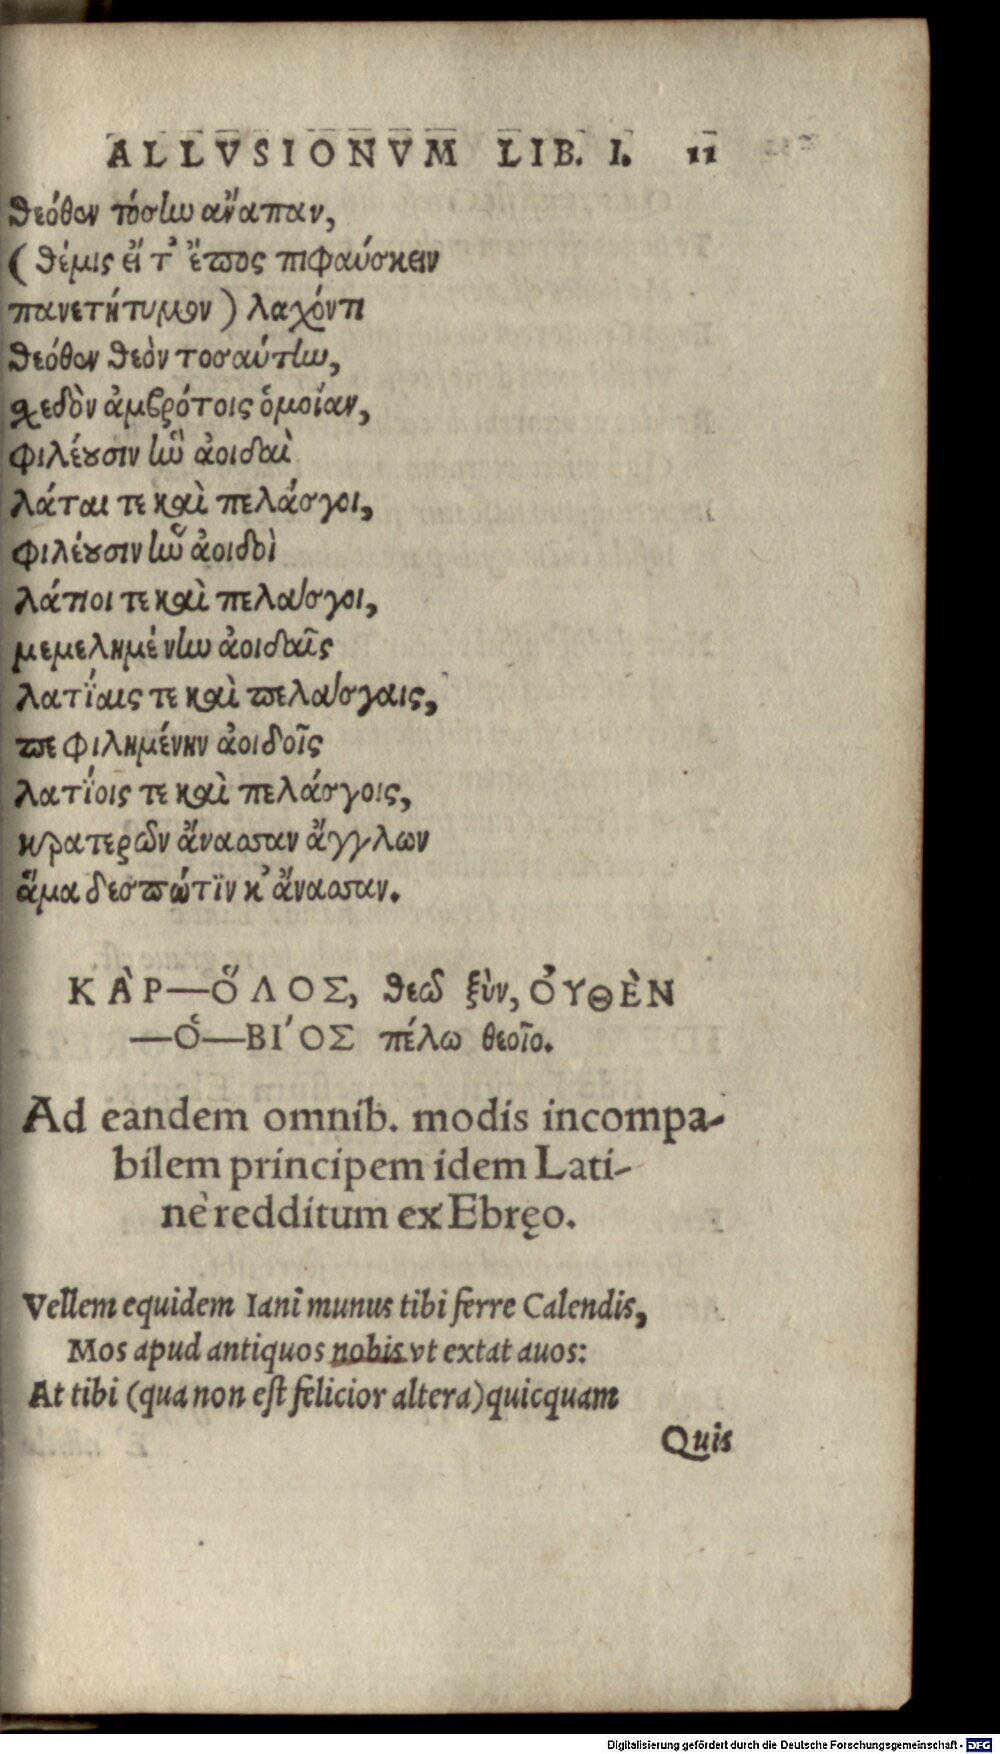 ALLVSIONVM LIB. I. 11
θεόθεν τόσην ἀνάπαν,
(θέμις εἴ τ' ἔπος πιφαύσκειν
πανετήτυμον) λαχόντι
θεόθεν θεὸν τοσαύτην,
χεδὸν ἀμβρότοις ὁμοίαν,
φιλέουσιν ἣν ἀοιδαὶ
λάται τε καὶ πελάσγοι,
φιλέουσιν ἣν ἀοιδοὶ
λάτιοι τε καὶ πελάσγοι,
μεμελημένην ἀοιδαῖς
λατίαις τε καὶ πελάσγαις,
πεφιλημένην ἀοιδοῖς
λατίοις τε καὶ πελάσγοις,
κρατερῶν ἄνασσαν ἄγγλων
ἅμα δεσπώτιν κ' ἄνασσαν.
ΚᾺΡ—ὍΛΟΣ, θεῷ ξὺν, ΟὐΘῈΝ
—Ὁ—ΒΊΟΣ πέλω θεοῖο.
Ad eandem omnib. modis incompa-
bilem principem idem Lati-
nè redditum ex Ebręo.
Vellem equidem Iani munus tibi ferre Calendis,
Mos apud antiquos nobis vt extat auos:
At tibi (qua non est felicior altera) quicquam
Quis
Digitalisierung gefördert durch die Deutsche Forschungsgemeinschaft - DFG